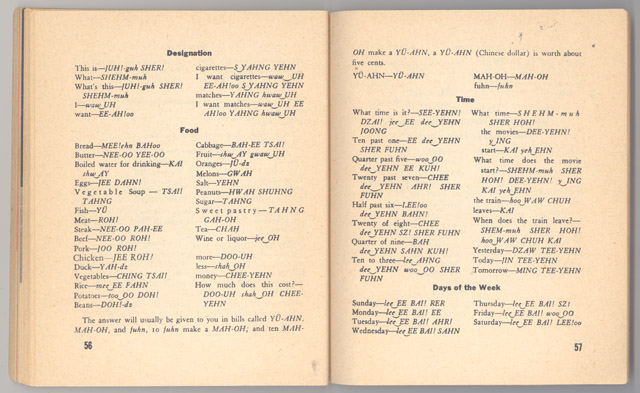 Designation
This is—JUH!-guh SHER!
What—SHEHM-muh
What's this—JUH!-guh SHER!
SHEHM-muh
I—waw_UH
want—EE-AH!oo
cigarettes—S_YAHNG YEHN
I want cigarettes—waw_UH
EE-AH!oo S_YAHNG YEHN
matches—YAHNG huaw_UH
I want matches—waw_UH EE
AH!oo YAHNG huaw_UH
Food
Bread—MEE!ehn BAHoo
Butter—NEE-OO YEE-OO
Boiled water for drinking—KAI
shw_AY
Eggs—JEE DAHN!
Vegetable Soup—TSAI!
TAHNG
Fish—YÜ
Meat—ROH!
Steak—NEE-OO PAH-EE
Beef—NEE-OO ROH!
Pork—JOO ROH!
Chicken—JEE ROH!
Duck—YAH-dz
Vegetables—CHING TSAI!
Rice—mee_EE FAHN
Potatoes—too_OO DOH!
Beans—DOH!-dz
Cabbage—BAH-EE TSAI!
Fruit—shw_AY gwaw_UH
Oranges—JÜ-dz
Melons—GWAH
Salt—YEHN
Peanuts—HWAH SHUHNG
Sugar—TAHNG
Sweet pastry—TAHNG
GAH-OH
Tea—CHAH
Wine or liquor—jee_OH
more—DOO-UH
less—shah_OH
money—CHEE-YEHN
How much does this cost?—
DOO-UH shah_OH CHEE-
YEHN
The answer will usually be given to you in bills called YÜ-AHN,
MAH-OH, and fuhn, 10 fuhn make a MAH-OH; and ten MAH-
56
OH make a YÜ-AHN, a YÜ-AHN (Chinese dollar) is worth about
five cents.
YÜ-AHN—YÜ-AHN
MAH-OH—MAH-OH
fuhn—fuhn
Time
What time is it?—SEE-YEHN!
DZAI! jee_EE dee_YEHN
JOONG
Ten past one—EE dee_YEHN
SHER FUHN
Quarter past five—woo_OO
dee_YEHN EE KUH!
Twenty past seven—CHEE
dee_YEHN AHR! SHER
FUHN
Half past six—LEE!oo
dee_YEHN BAHN!
Twenty of eight—CHEE
dee_YEHN SZ! SHER FUHN
Quarter of nine—BAH
dee_YEHN SAHN KUH!
Ten to three—lee_AHNG
dee_YEHN woo_OO SHER
FUHN
What time—SHEHM-muh
SHER HOH!
the movies—DEE-YEHN!
y_ING
start—KAI yeh_EHN
What time does the movie
start?—SHEHM-muh SHER
HOH! DEE-YEHN! y_ING
KAI yeh_EHN
the train—hoo_WAW CHUH
leaves—KAI
When does the train leave?—
SHEM-muh SHER HOH!
hoo_WAW CHUH KAI
Yesterday—DZAW TEE-YEHN
Today—JIN TEE-YEHN
Tomorrow—MING TEE-YEHN
Days of the Week
Sunday—lee_EE BAI! RER
Monday—lee_EE BAI! EE
Tuesday—lee_EE BAI! AHR!
Wednesday—lee_EE BAI! SAHN
Thursday—lee_EE BAI! SZ!
Friday—lee_EE BAI! woo_OO
Saturday—lee_EE BAI! LEE!oo
57